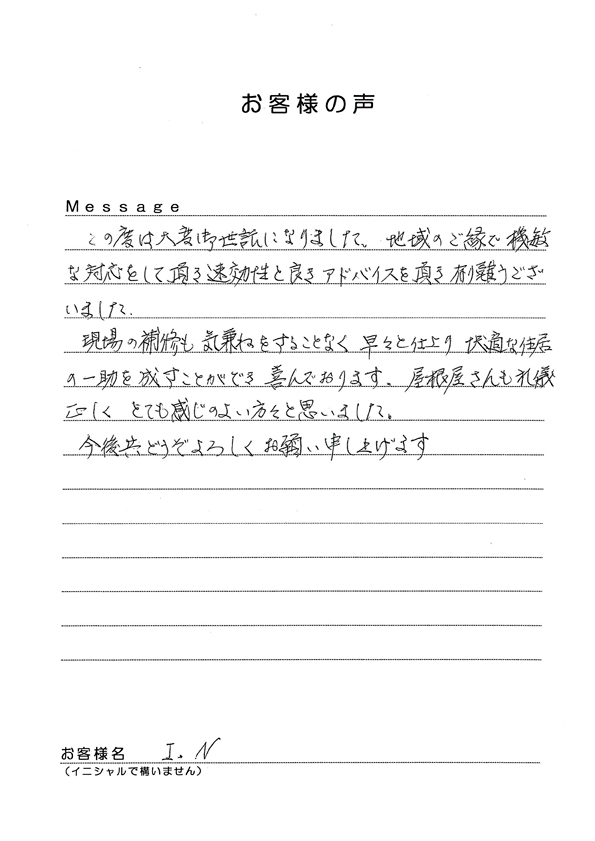 お客様の声
Message
この度は大変御世話になりました。地域のご縁で機敏
な対応をして頂き速効性と良きアドバイスを頂き有難うござ
いました。
現場の補修も気兼ねをすることなく早々と仕上り快適な住居
の一助を成すことができ喜んでおります。屋根屋さんも礼儀
正しくとても感じのよい方々と思いました。
今後共どうぞよろしくお願い申し上げます
お客様名 I.N
（イニシャルで構いません）